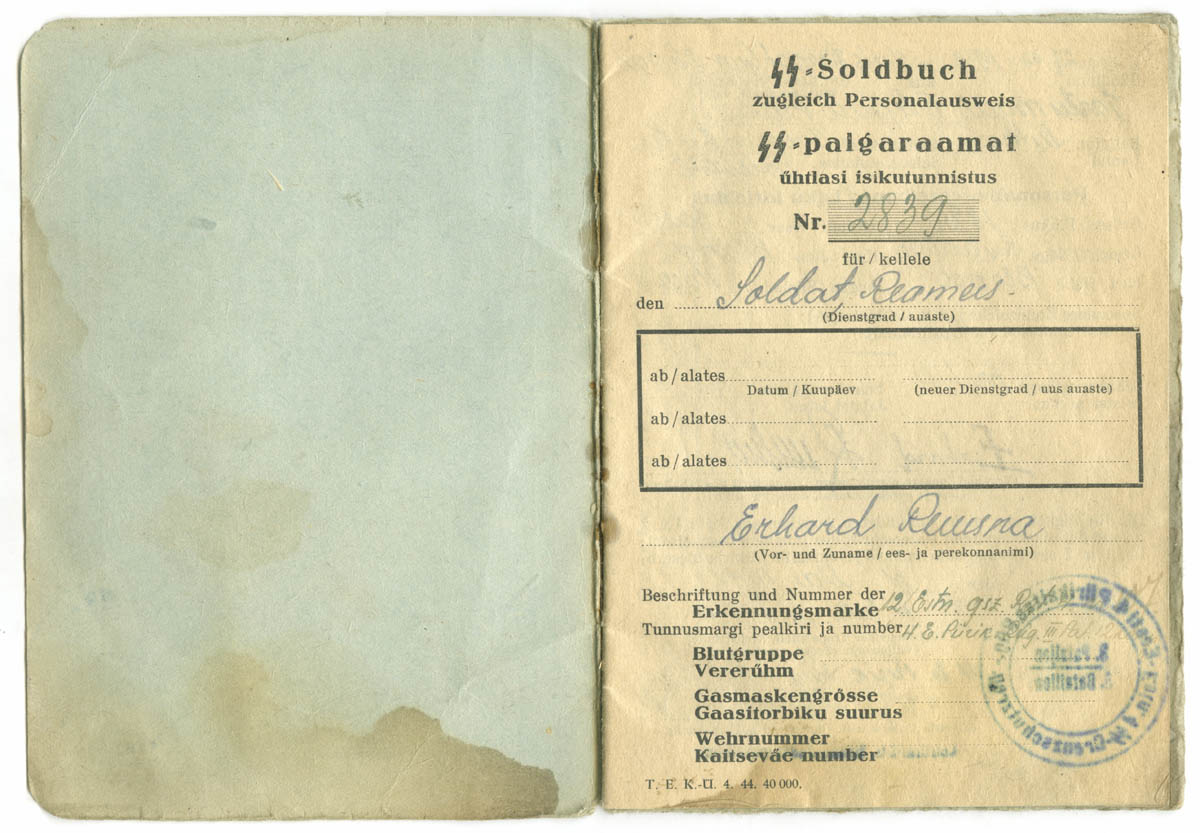 SS-Soldbuch
zugleich Personalausweis
SS-palgaraamat
ühtlasi isikutunnistus
Nr. 2839
für / kellele
den Soldat,
(Dienstgrad / auaste)
ab / alates
Datum / Kuupäev (neuer Dienstgrad / uus auaste)
ab / alates
ab / alates
Erhard
(Vor- und Zuname / ees- ja perekonnanimi)
Beschriftung und Nummer der
Erkennungsmarke 12 Estn.
Tunnusmargi pealkiri ja number 4. E.
Blutgruppe
Vererühm
Gasmaskengrösse
Gaasitorbiku suurus
Wehrnummer
Kaitseväe number
T. E. K.-Ü. 4. 44. 40 000.